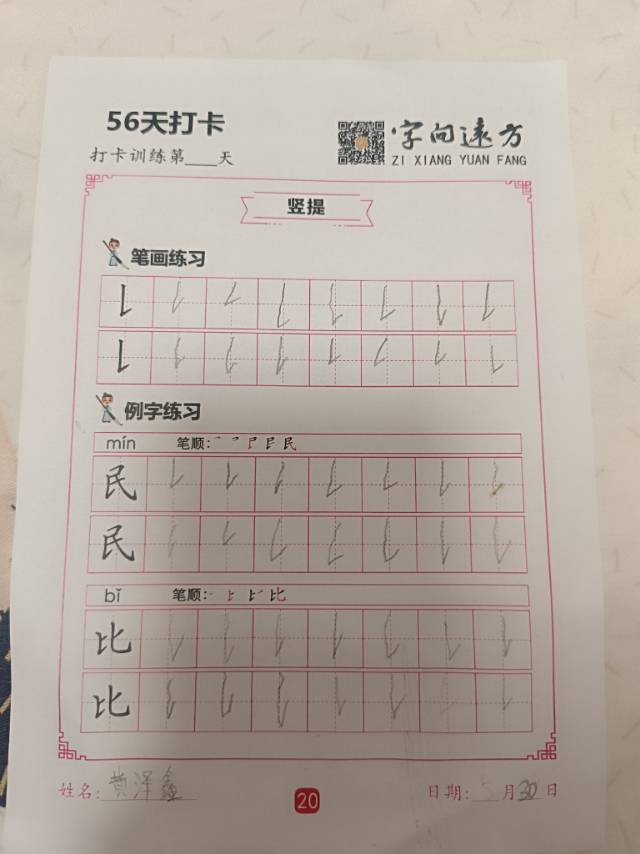 56天打卡
字向远方
打卡训练第____天
ZI XIANG YUAN FANG
竖提
笔画练习
例字练习
mín 笔顺:
民
民
bǐ 笔顺: 比
比
比
姓名: 黄泽鑫
20
日期: 5月30日